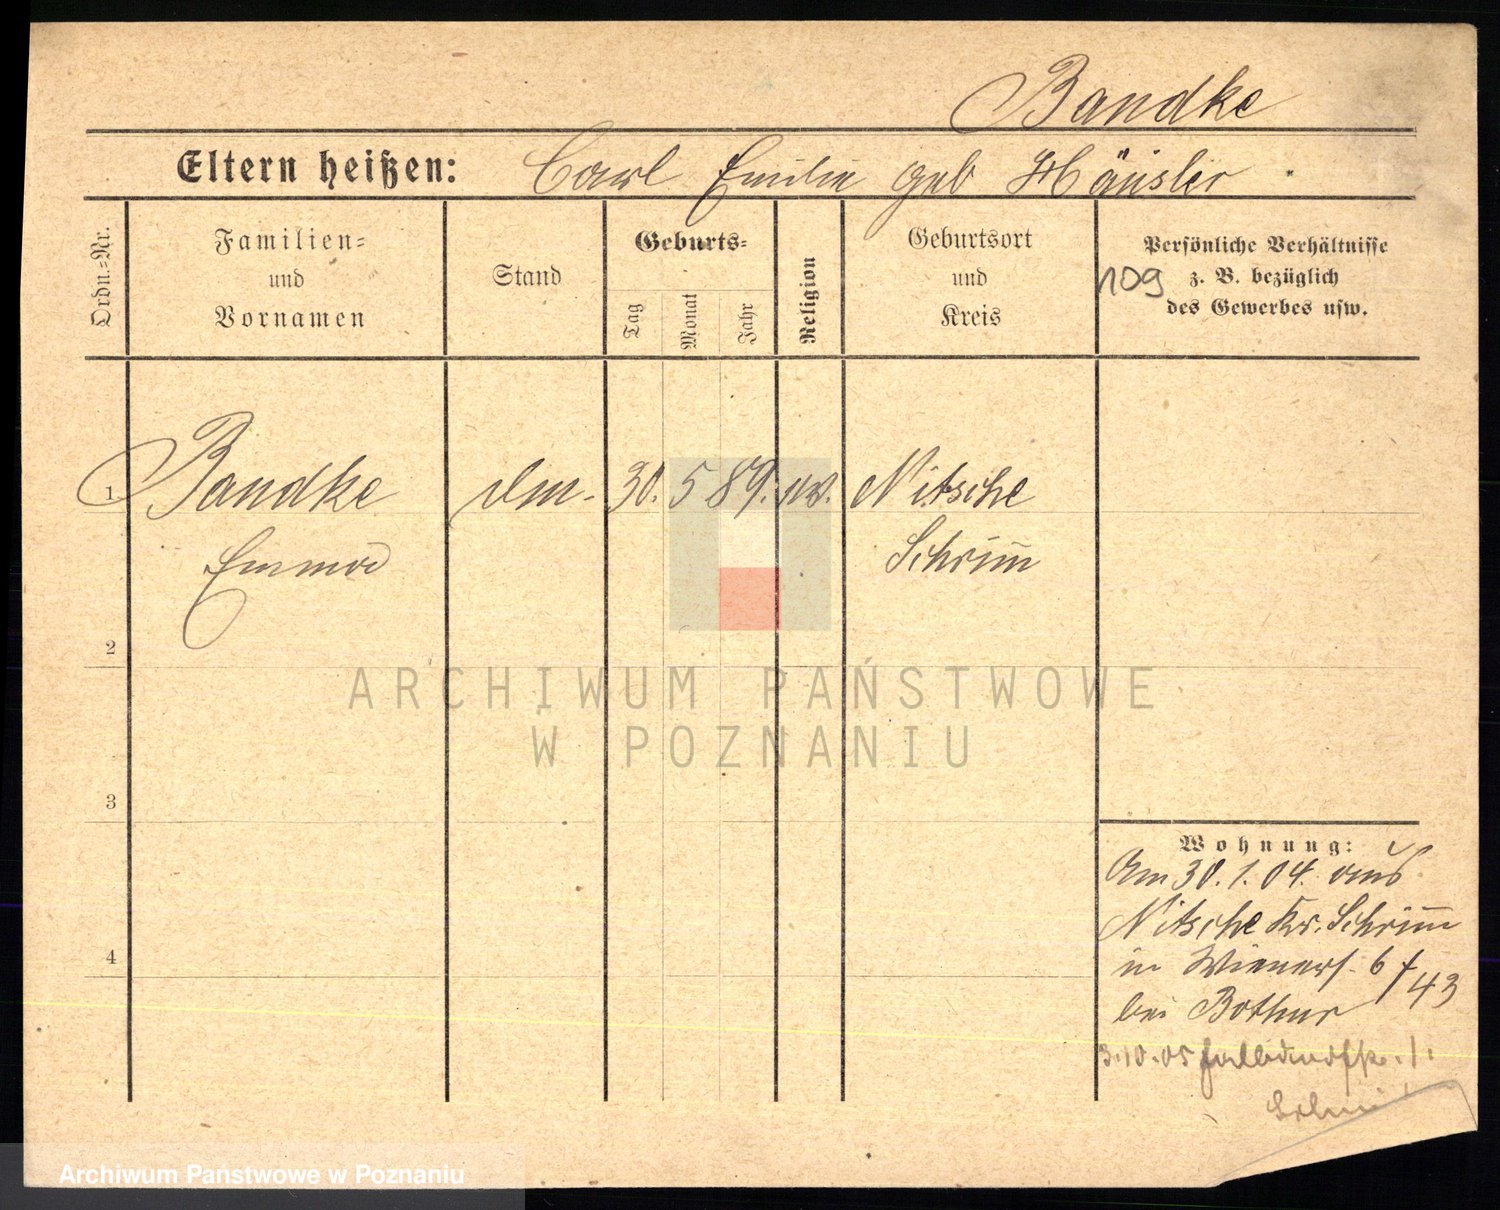 Bandke
Eltern heißen: Carl Emilie geb Häusler
Ordn.-Nr.
Familien-
und
Vornamen
Stand
Geburts-
Tag
Monat
Jahr
Religion
Geburtsort
und
Kreis
Persönliche Verhältnisse
z. B. bezüglich
des Gewerbes usw.
109
1 Bandke 30. 5 89. ev. Nitsche
Emma Schrimm
2
3
4
Wohnung:
Am 30.1.04. aus
Nitsche Kr. Schrimm
in Wieners. 6
bei 43
3.10.05
ARCHIWUM PAŃSTWOWE
W POZNANIU
Archiwum Państwowe w Poznaniu